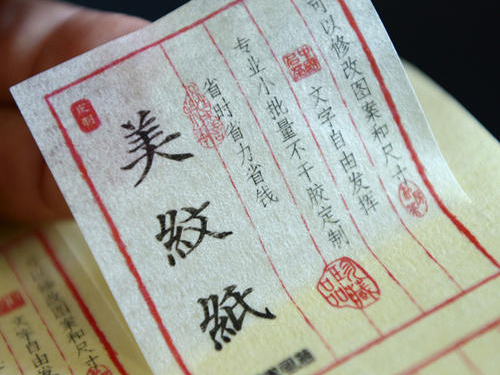 可以修改图案和尺寸
文字自由发挥
专业小批量不干胶定制
省时省力省钱
定制
美紋紙
珍藏
可以修改图案和尺寸
文字自由